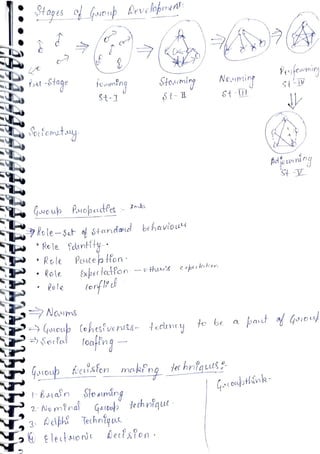 Stages of Group Development:
Pre-Stage
Forming
St-I
Storming
St-II
Norming
St-III
Performing
St-IV
Adjourning
St-V
Sociometry
Group Properties -
⇒ Role - Set of Standard behaviour
• Role Identity.
• Role Perception.
• Role Expectation - other's expectation
• Role conflict
⇒ Norms
→ Group Cohesiveness - tedency to be a part of Group
⇒ Social loafing -
Group Decision making techniques:
1. Brain Storming
2. Nominal Group technique.
3. Delphi Technique
4. Electronic Decision.
Groupthink-